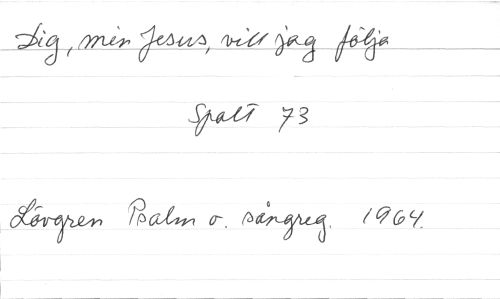 Dig, min Jesus, vill jag följa
Spalt 73
Lövgren Psalm o. sångreg. 1964.